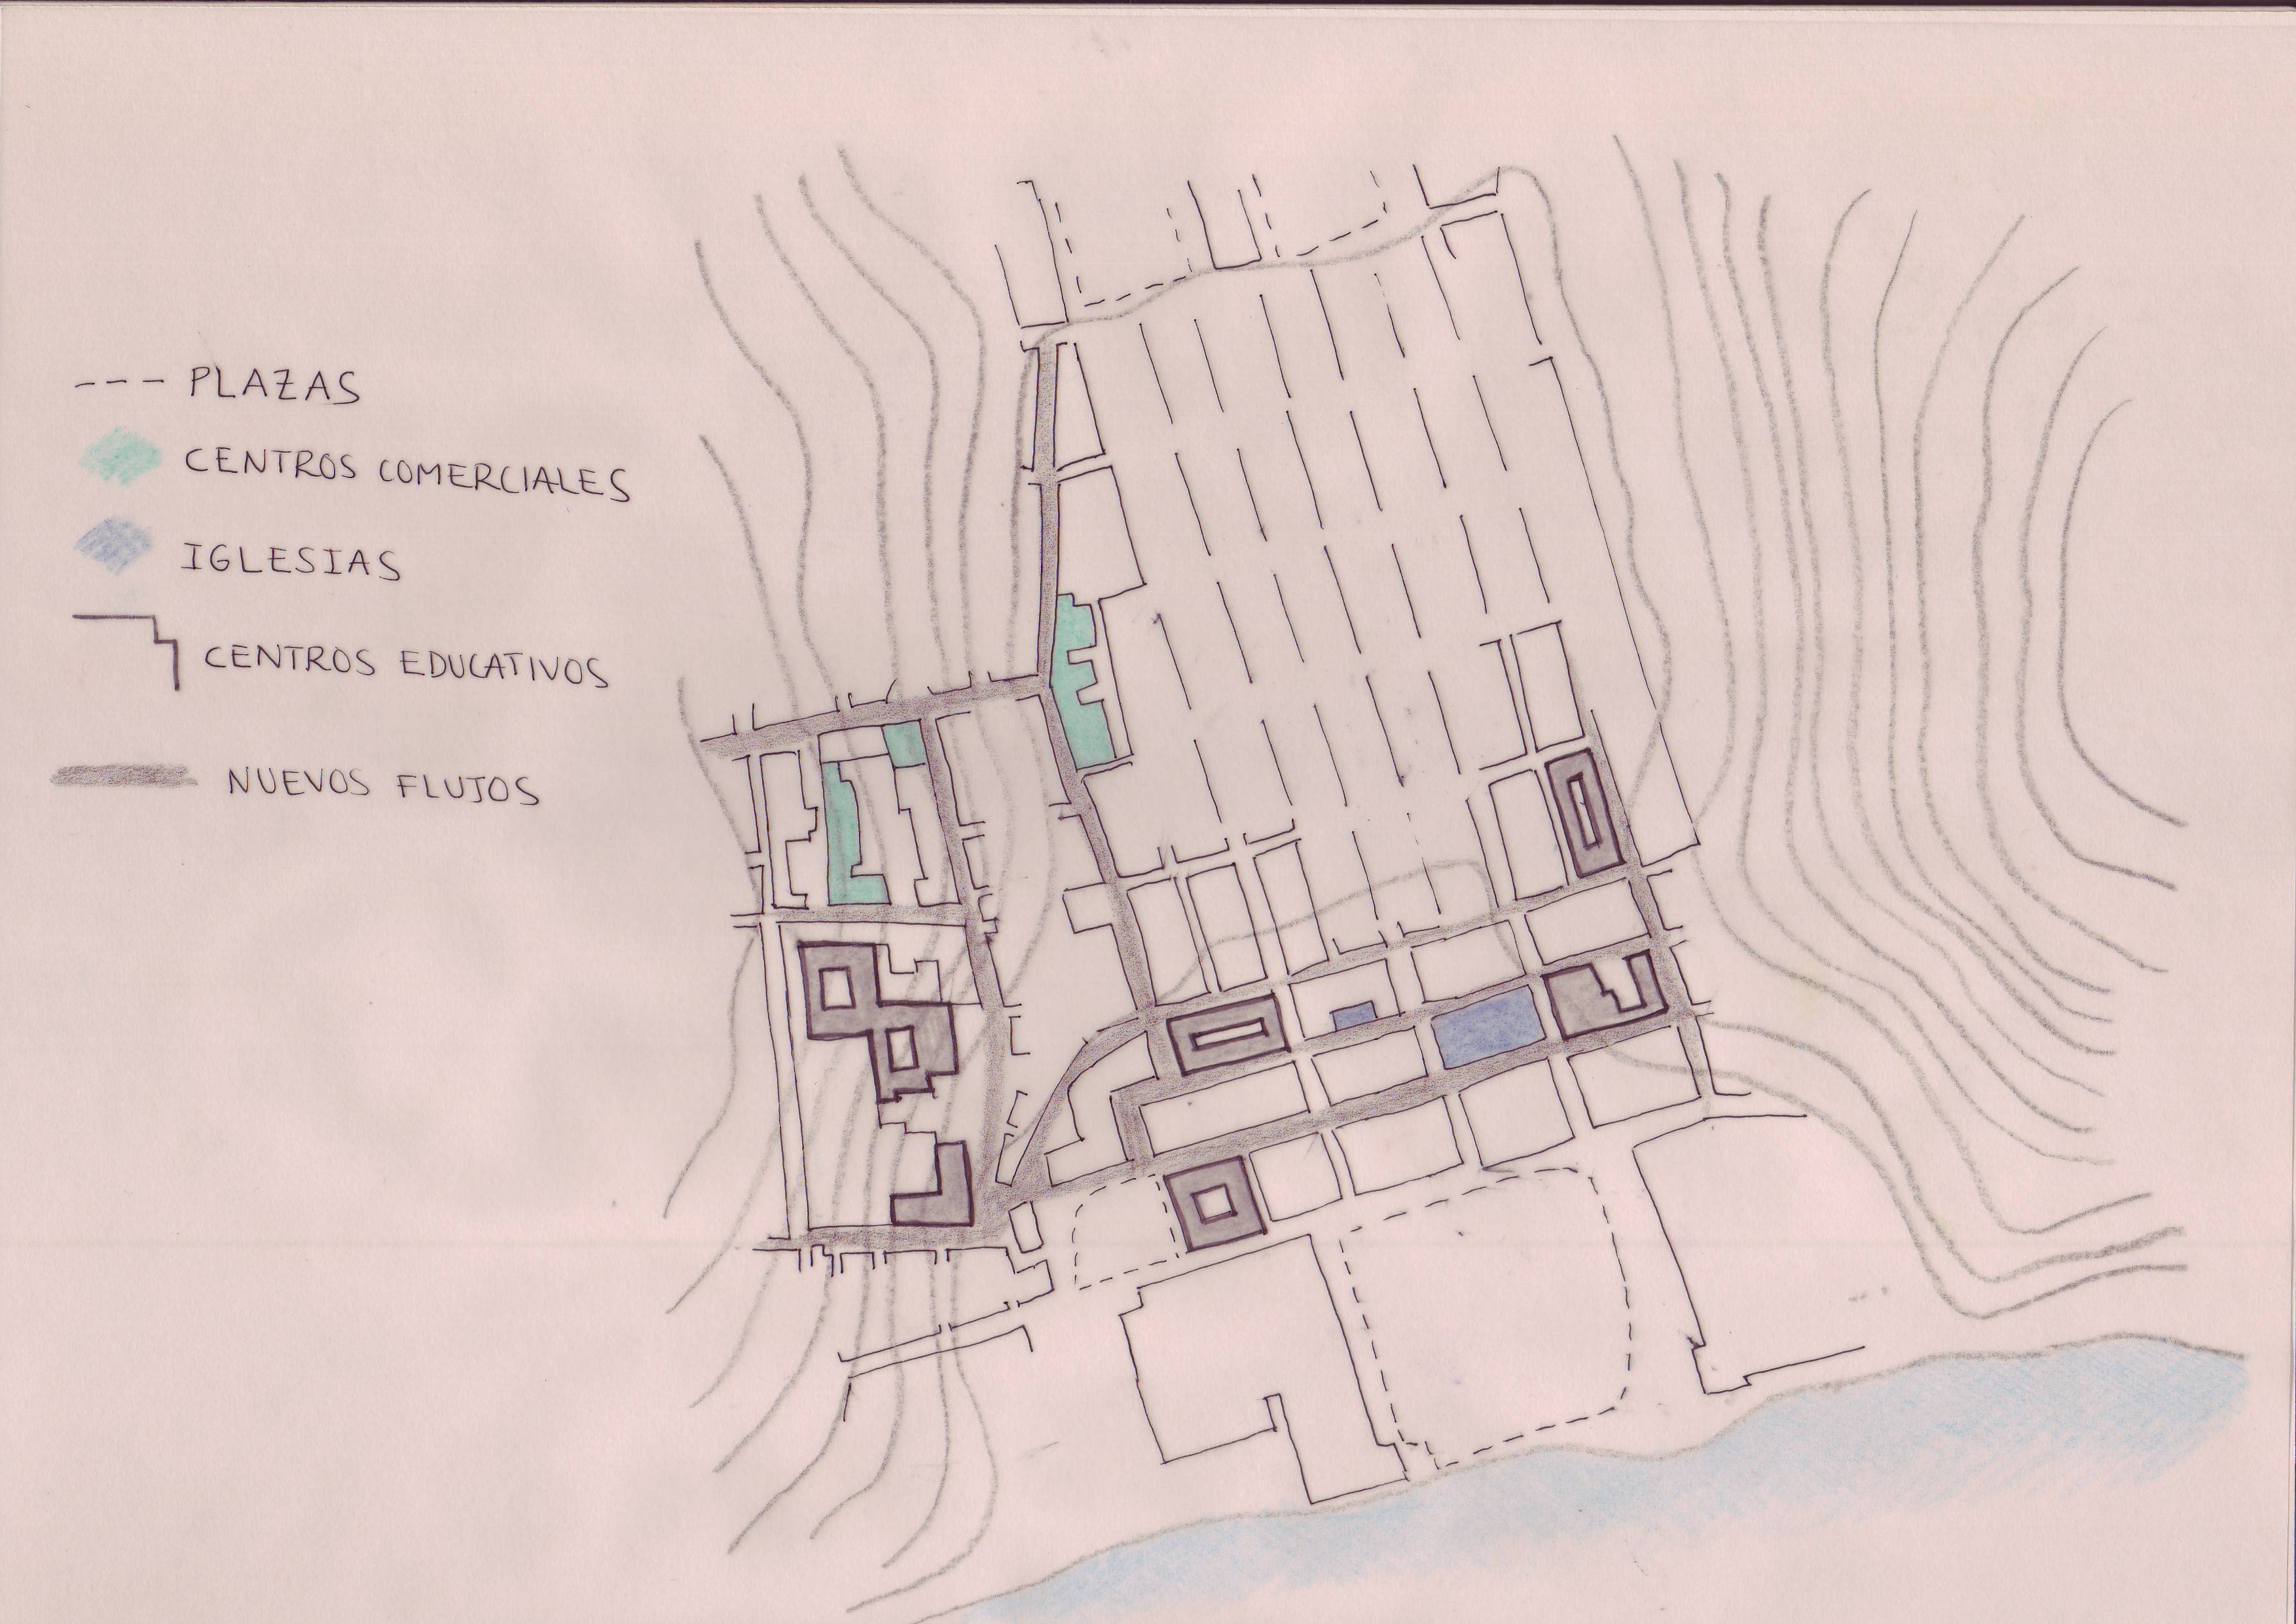 PLAZAS
CENTROS COMERCIALES
IGLESIAS
CENTROS EDUCATIVOS
NUEVOS FLUJOS